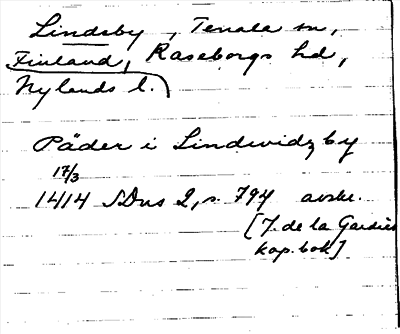 Lindsby, Tenala sn,
Finland, Raseborgs hd,
Nylands l.
Päder i Lindwidzby
17/3
1414 SDns 2, s. 794 avskr.
[J. de la Gardies
kop. bok]